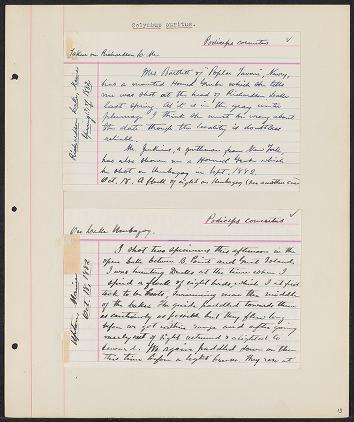 Colymbus auritus.
Podiceps cornutus ✓
Taken on Richardson Lake
Richardson Lake, Maine
Spring of 1882
Mrs Bartlett of "Poplar Tavern", Newry,
has a mounted Horned Grebe which she tells
me was shot at the head of Richardson Lake
last spring. As it is in the gray winter
plumage I think she must be wrong about
the date though the locality is doubtless
reliable.
Mr. Jenkins, a gentleman from New York,
has also shown me a Horned Grebe which
he shot on Umbagog in Sept. 1882.
Oct. 18. A flock of eight on Umbagog (See another card)
Podiceps cornutus ✓
On Lake Umbagog.
Upton, Maine
Oct. 18, 1882
I shot two specimens this afternoon in the
open lake between B. Point and Great Island.
I was hunting Ducks at the time when I
spied a flock of eight birds which I at first
took to be Coots, swimming near the middle
of the Lake. The guide paddled towards them
as cautiously as possible but they flew long
before we got within range and after going
nearly out of sight returned & alighted to
leeward. We again paddled down on them
this time before a light breeze. They rose at
13